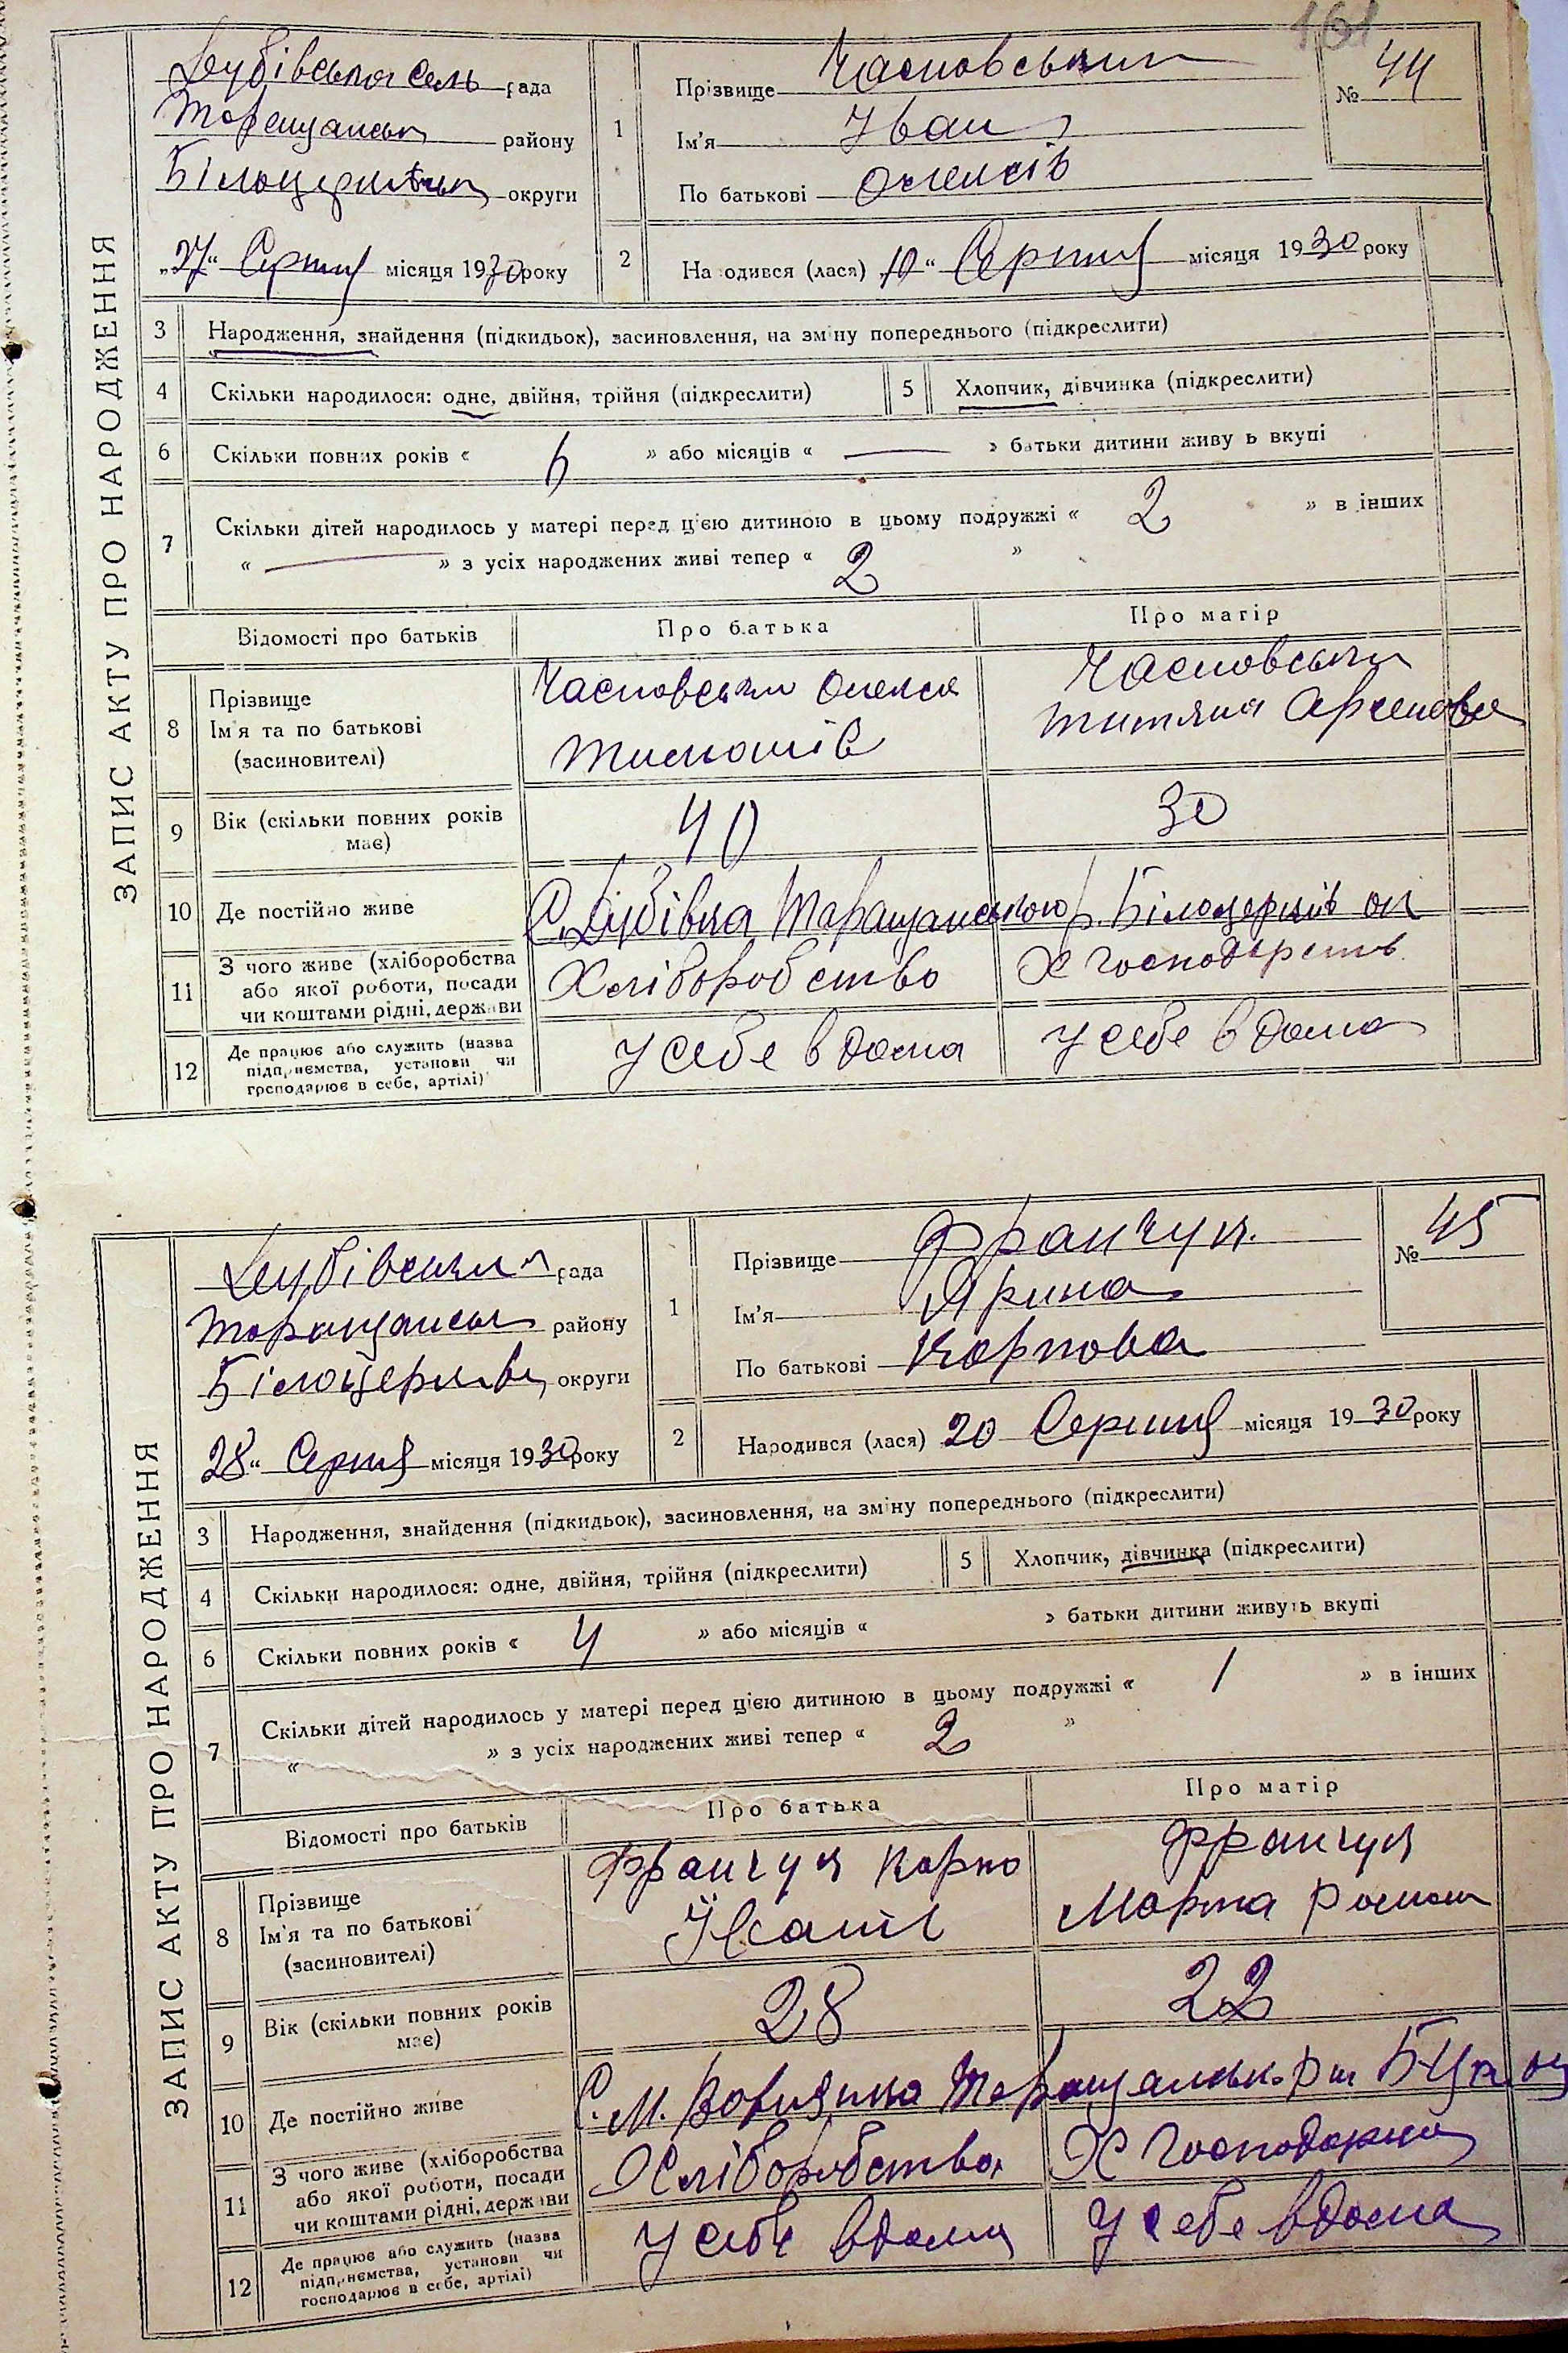 161
ЗАПИС АКТУ ПРО НАРОДЖЕННЯ
Дубівська сель рада
Таращанськ району
Білоцерківськ округи
„27“ Серпня місяця 1930 року
1
Прізвище Часновський
Ім'я Іван
По батькові Олексів
№ 44
2
Народився (лася) „10“ Серпня місяця 1930 року
3 Народження, знайдення (підкидьок), засиновлення, на зміну попереднього (підкреслити)
4 Скільки народилося: одне, двійня, трійня (підкреслити)
5 Хлопчик, дівчинка (підкреслити)
6 Скільки повних років « 6 » або місяців « — » батьки дитини живуть вкупі
7 Скільки дітей народилось у матері перед цією дитиною в цьому подружжі « 2 » в інших
« — » з усіх народжених живі тепер « 2 »
Відомості про батьків
Про батька
Про матір
8
Прізвище
Ім'я та по батькові
(засиновителі)
Часновський Олекса
Тимошів
Часновська
Титяна Арсенова
9
Вік (скільки повних років
має)
40
30
10 Де постійно живе
С. Дубівка Таращанського р. Білоцерків ок
11
З чого живе (хліборобства
або якої роботи, посади
чи коштами рідні, держави
Хліборобство
Х господарств
12
Де працює або служить (назва
підприємства, установи чи
господарює в себе, артілі)
У себе вдома
У себе вдома
ЗАПИС АКТУ ПРО НАРОДЖЕННЯ
Дубівська рада
Таращанськ району
Білоцерків округи
28“ Серпня місяця 1930 року
1
Прізвище Франчук
Ім'я Ярина
По батькові Карпова
№ 45
2
Народився (лася) 20 Серпня місяця 1930 року
3 Народження, знайдення (підкидьок), засиновлення, на зміну попереднього (підкреслити)
4 Скільки народилося: одне, двійня, трійня (підкреслити)
5 Хлопчик, дівчинка (підкреслити)
6 Скільки повних років « 4 » або місяців « » батьки дитини живуть вкупі
7 Скільки дітей народилось у матері перед цією дитиною в цьому подружжі « 1 » в інших
« » з усіх народжених живі тепер « 2 »
Відомості про батьків
Про батька
Про матір
8
Прізвище
Ім'я та по батькові
(засиновителі)
Франчук Карпо
Франчук
Марта Роман
9
Вік (скільки повних років
має)
28
22
10 Де постійно живе
С. М. Вовнянка Таращанськ.
11
З чого живе (хліборобства
або якої роботи, посади
чи коштами рідні, держави
Хліборобства
Х Господарка
12
Де працює або служить (назва
підприємства, установи чи
господарює в себе, артілі)
У себе вдома
У себе вдома